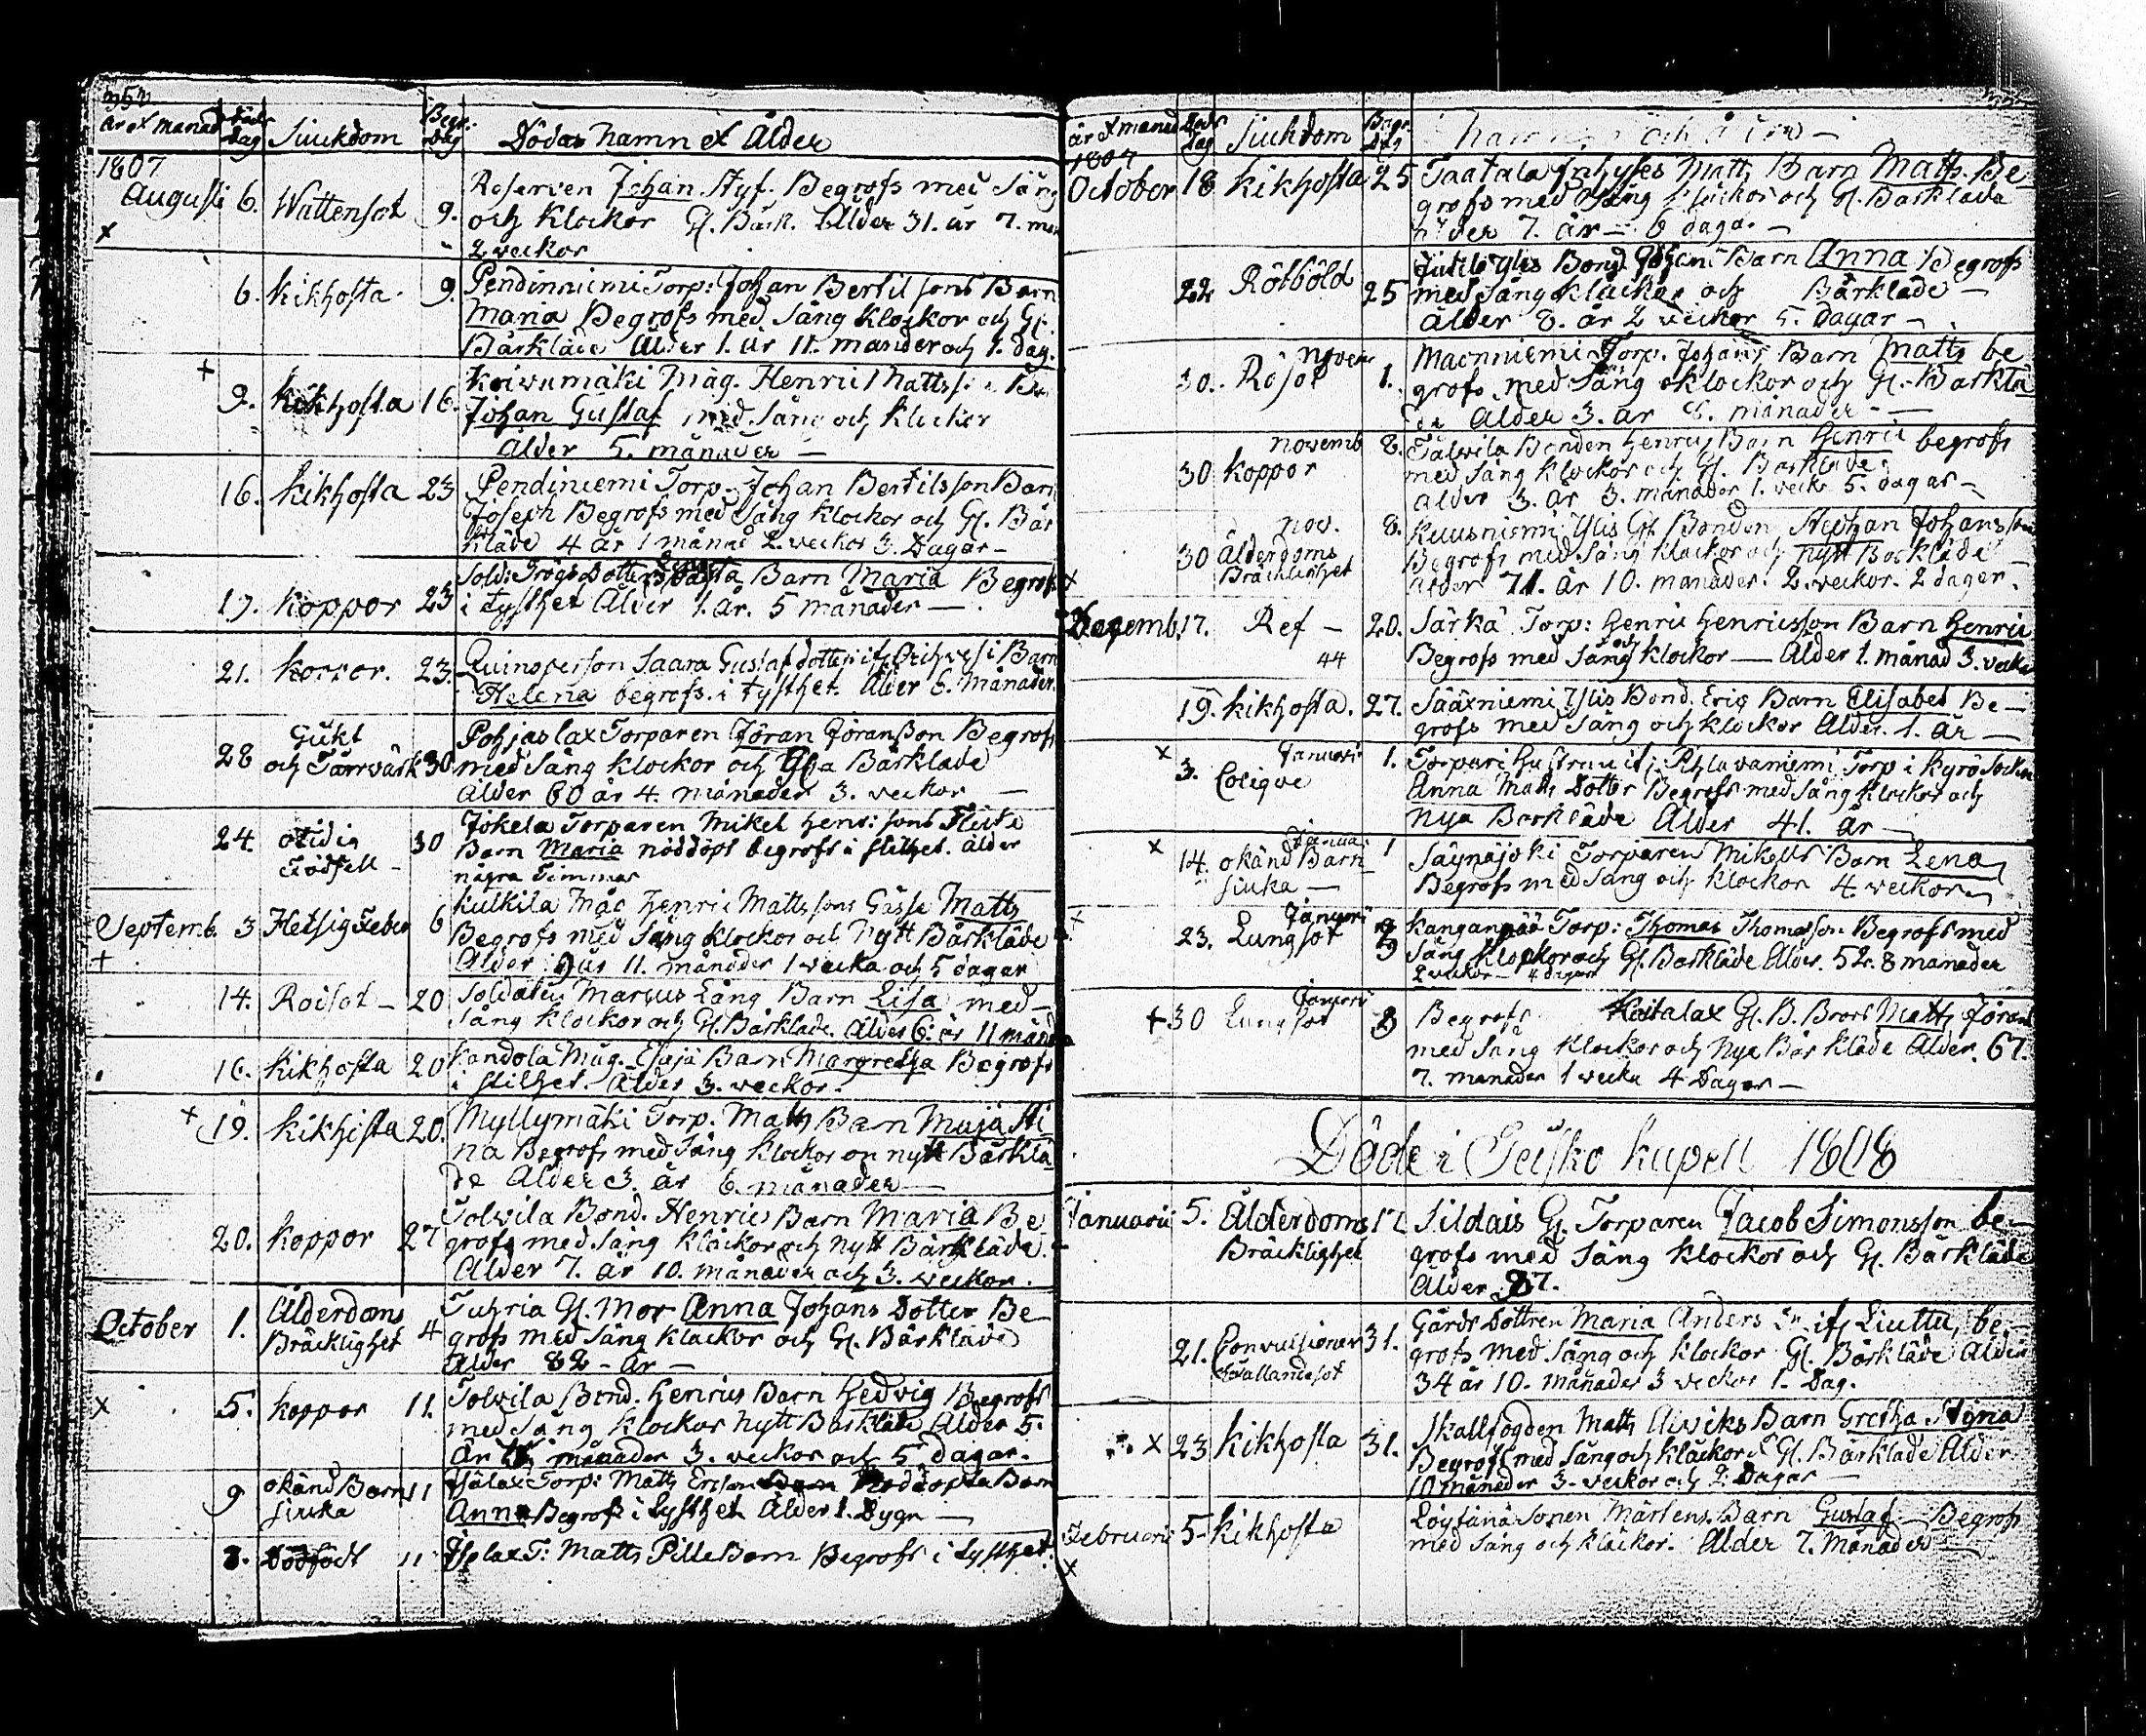 år et månad Döds dag Siuckdom Begr: dag Dödas Namn et Ålder
1807
Augusti 6. Wattensot 9. Reserven Johan Styf. Begrofs med Sång
och Klockor Gl. Bårk. Ålder 31. år 7. mån
2 veckor
6. kikhosta 9. Pendinniemi Torp: Johan Bertilsons Barn
Maria Begrofs med Sång Klockor och Gl.
Bårkläde Ålder 1. år 11. månader och 1. dag.
9. kikhosta 16. Koivumäki Måg. Henric Mattss
Johan Gustaf med Sång och Klockor
Ålder 5. månader —
16. kikhosta 23 Pendiniemi Torp. Johan Bertilsson Barn
Joseph Begrofs med Sång Klockor och Gl. Bår
kläde 4 år 1 månad 2. veckor 3. Dagar —
17. koppor 23 Sold: Dotter Barn Maria Begrofs
i tysthet Ålder 1. år. 5 månader —
21. koppor. 23. Quinsperson Saara Gustafsdotter ifr Barn
Helena begrofs. i tysthet. Ålder 6. Månader.
28 Gickt och Torrvärk 30 Pohjaslax Torparen Jöran Jöransson Begrofs
med Sång Klockor och Gla Bårkläde
Ålder 60 år 4. månader 3. veckor —
24. otidig Födsell 30 Jokela Torparen Mikel Henr: sons
Barn Maria nöddöpt begrofs i stillhet. Ålder
några Timmar
Septemb. 3 Hetsig Feber 6 kulkila Måg Henric Mattssons Gåsse Matts
Begrofs med Sång Klockor och Nytt Bårkläde
Ålder 9 år 11. månader 1 vecka och 5 dagar
14. Rosot — 20 Soldaten Marcus Lång Barn Lisa med —
Sång Klockor och Gl. Bårkläde. Ålder 6. år 11 månd
16. kikhosta 20 Kandola Måg. Esaja Barn Margretha Begrofs
i stilhet. Ålder 3. veckor.
19. kikhosta 20. Myllymäki Torp. Matts Barn Maja Sti
na Begrofs med Sång Klockor on nytt Bårklä
de Ålder 3. år 6. månader —
20. koppor 27 Tolvila Bond. Henrics Barn Maria Be
grofs med Sång Klockor och Nytt Bårkläde.
Ålder 7. år 10. månader och 3. veckor.
October 1. Ålderdoms Bräcklighet 4 Tuhria Gl. Mor Anna Johans Dotter Be-
grofs med Sång Klockor och Gl. Bårkläde
Ålder 82 - år —
5. koppor 11. Tolvila Bond. Henrics Barn Hedvig Begrofs
med Sång Klockor Nytt Bårkläde Ålder 5.
år månader 3. veckor och 5 dagar.
9 okänd Barn siuka 11 Torp: Matts Ericson Nöddöpta Barn
Anna Begrofs i tysthet Ålder 1. Dygn —
Dödfödt 11 T: Matts Pille Barn Begrofs i tysthet.
år et månad Döds Dag Siuckdom Begr Dag
1807
October 18 kikhosta 25 Taatala Inhyses Matts Barn Matts. Be
grofs med Sång Klockor och Gl. Bårkläde
Ålder 7. år — 6 dagar —
22 Rötböld 25 Bond Johans Barn Anna Begrofs
med Sång Klockor och Bårkläde —
Ålder 8. år 2 veckor 5. Dagar —
30. Rosot novem 1. Maonniemi Torp. Johans Barn Matts be
grofs. med Sång Klockor och Gl. Bårklä
de Ålder 3. år månader —
30 koppor novemb 8. Tolvila Bonden Henrics Barn Henric begrofs
med Sång Klockor och Gl. Bårkläde.
Ålder 3. år 3. månader 1. veck 5. dagar —
30 Ålderdoms Bräcklighet nov. 8. Kuusniemi Ylis Gl Bonden Stephan Johansson
Begrofs med Sång Klockor och nytt Bårkläde —
Ålder 71. år 10. månader. 2. veckor. 2 dagar.
Decemb. 17. Ref — 20. Särkä Torp: Henric Henricsson Barn Henric
Begrofs med Sång och Klockor — Ålder 1. månad 3. veckor
44
19. kikhosta. 27. Sääxniemi Ylis Bond. Eric Barn Elisabet Be —
grofs med Sång och Klockor Ålder. 1. år —
3. Colique Januari 1. Torp i kyrö Socken
Anna Matts Dotter Begrofs med Sång Klockor och
Nya Bårkläde Ålder 41. år —
14. okänd Barn siuka — Januari 1 Säynäjoki Torparen Mikells Barn Lena
Begrofs med Sång och Klockor 4 veckor
23. Lungsot Januari 3 Kanganpää Torp: Thomas Thomasson Begrofs med
Sång Klockor och Gl. Bårkläde Ålder. 52. 8 månader
2 veckor — 4 dagar
30 Lungsot Januari 3 Begrofs Kaitalax Gl. B. Brors Matts Jörans
med Sång Klockor och Nya Bårkläde Ålder. 67.
7. månader 1 vecka 4 Dagar —
Döde i Kapell 1808
Januarii 5. Ålderdoms Bräcklighet 17 Sildais Gl. Torparen Jacob Simonsson be-
grofs med Sång Klockor och Gl. Bårkläde
Ålder 87.
21. Convulsioner Fallandesot 31. Gårds Dottren Maria Anders Dr. ifr Liuttu, be-
grofs med Sång och Klockor Gl. Bårkläde Ålder
34 år 10. månader 3 veckor 1. Dag.
23 kikhosta 31. Skallfogden Matts Barn Gretha Stina
Begrofs med Sång och Klockor Gl. Bårkläde Ålder
10 månader 3. veckor och 2. Dagar —
Februari 5 kikhosta Löytänä Sonen Mårtens Barn Gustaf Begrofs
med Sång och Klockor. Ålder 7. Månader —